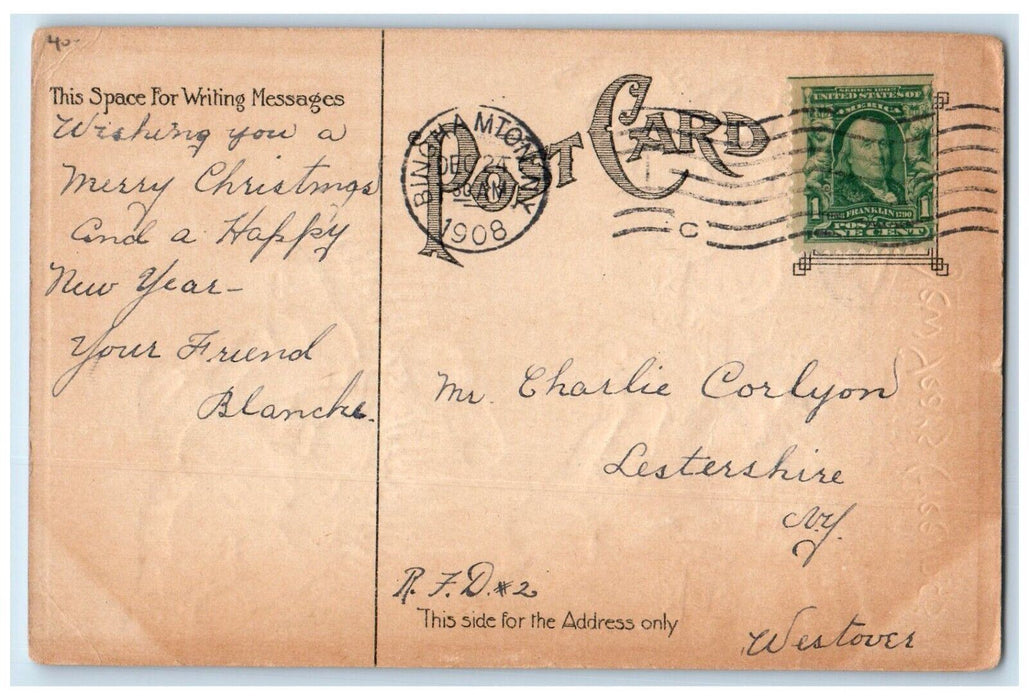 40-
This Space For Writing Messages
Wishing you a
Merry Christmas
and a Happy
New Year-
Your Friend
Blanche.
POST CARD
BINGHAMTON, N.Y.
DEC 24
30 AM
1908
C
SERIES 1902
UNITED STATES OF
AMERICA
1 FRANKLIN 1790 1
POSTAGE
ONE CENT
Mr. Charlie Corlyon
Lestershire
N.Y.
R.F.D. #2
This side for the Address only
Westover